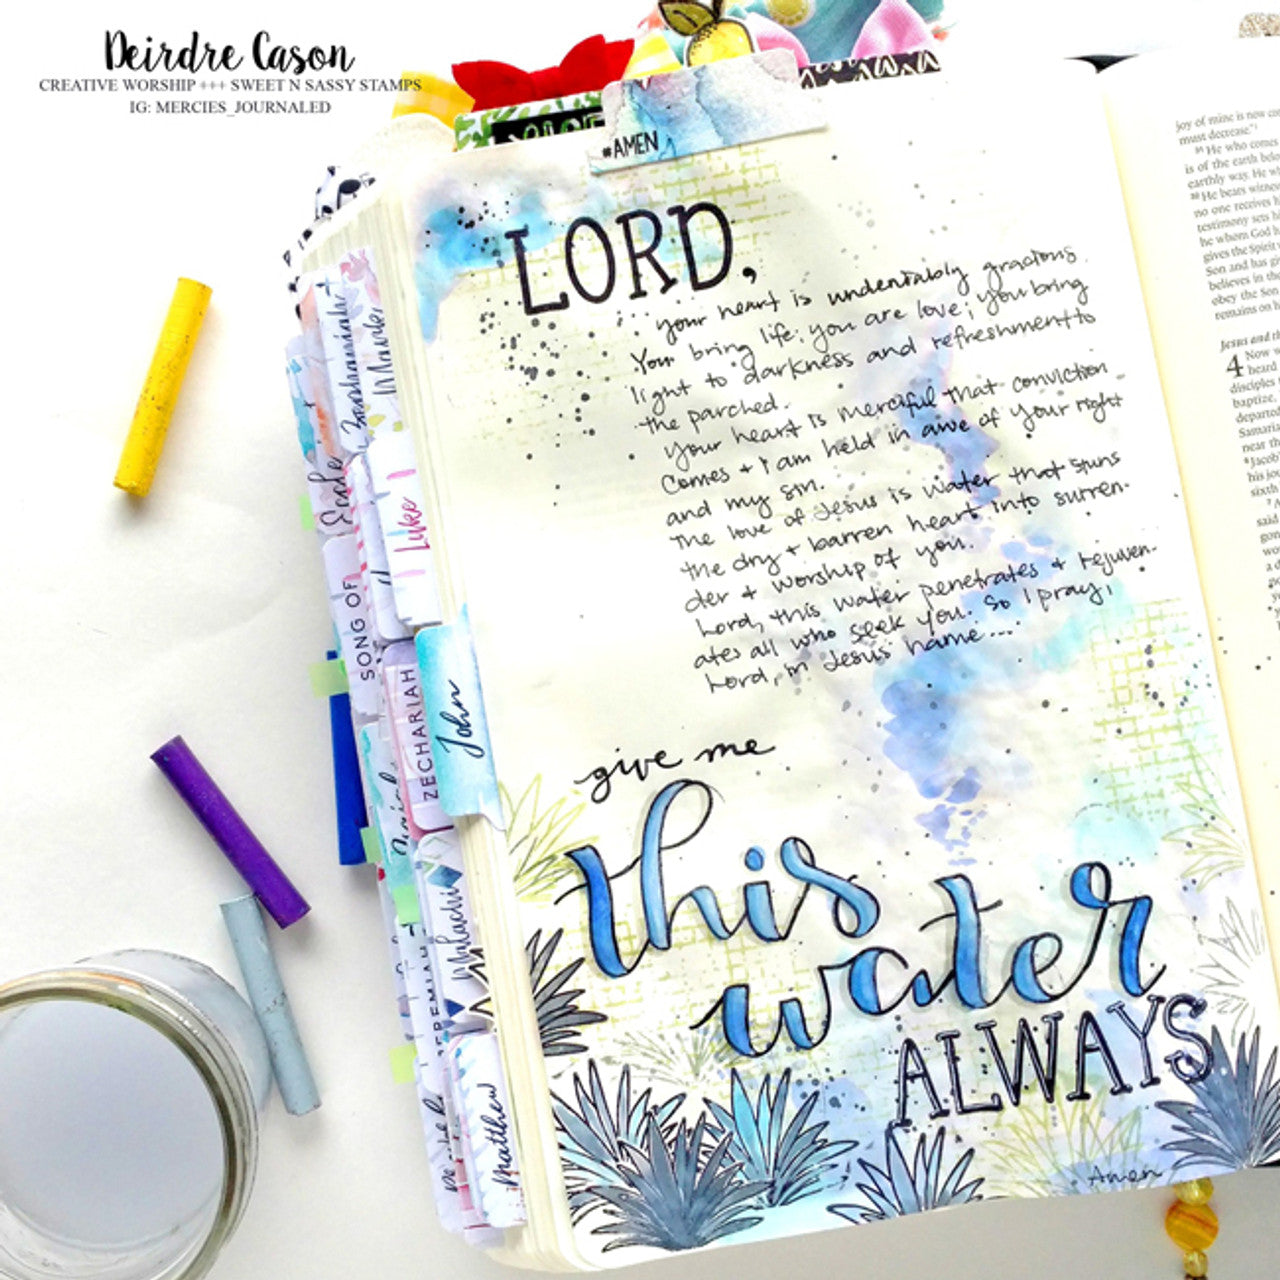 Deirdre Cason
CREATIVE WORSHIP +++ SWEET N SASSY STAMPS
IG: MERCIES_JOURNALED
#AMEN
LORD,
your heart is undeniably gracious.
You bring life; you are love; you bring
light to darkness and refreshment to
the parched.
Your heart is merciful that conviction
comes + I am held in awe of your right
and my sin.
The love of Jesus is water that stuns
the dry + barren heart into surren-
der + worship of you.
Lord, this water penetrates + rejuven-
ates all who seek you. So I pray,
Lord, in Jesus name...
give me
this
water
ALWAYS
Amen
Luke
SONG OF
ZECHARIAH
John
Malachi
JEREMIAH
Matthew
joy of mine is now
must decrease."
He who comes
is of the earth
earthly way. He
He bears witness
no one receives
testimony sets
he whom God
gives the Spirit
Son and has
believes in the
obey the Son
remains on
Jesus and
4 Now
heard
disciples
baptize,
Samaria
near
Jacob
his
sixth
said